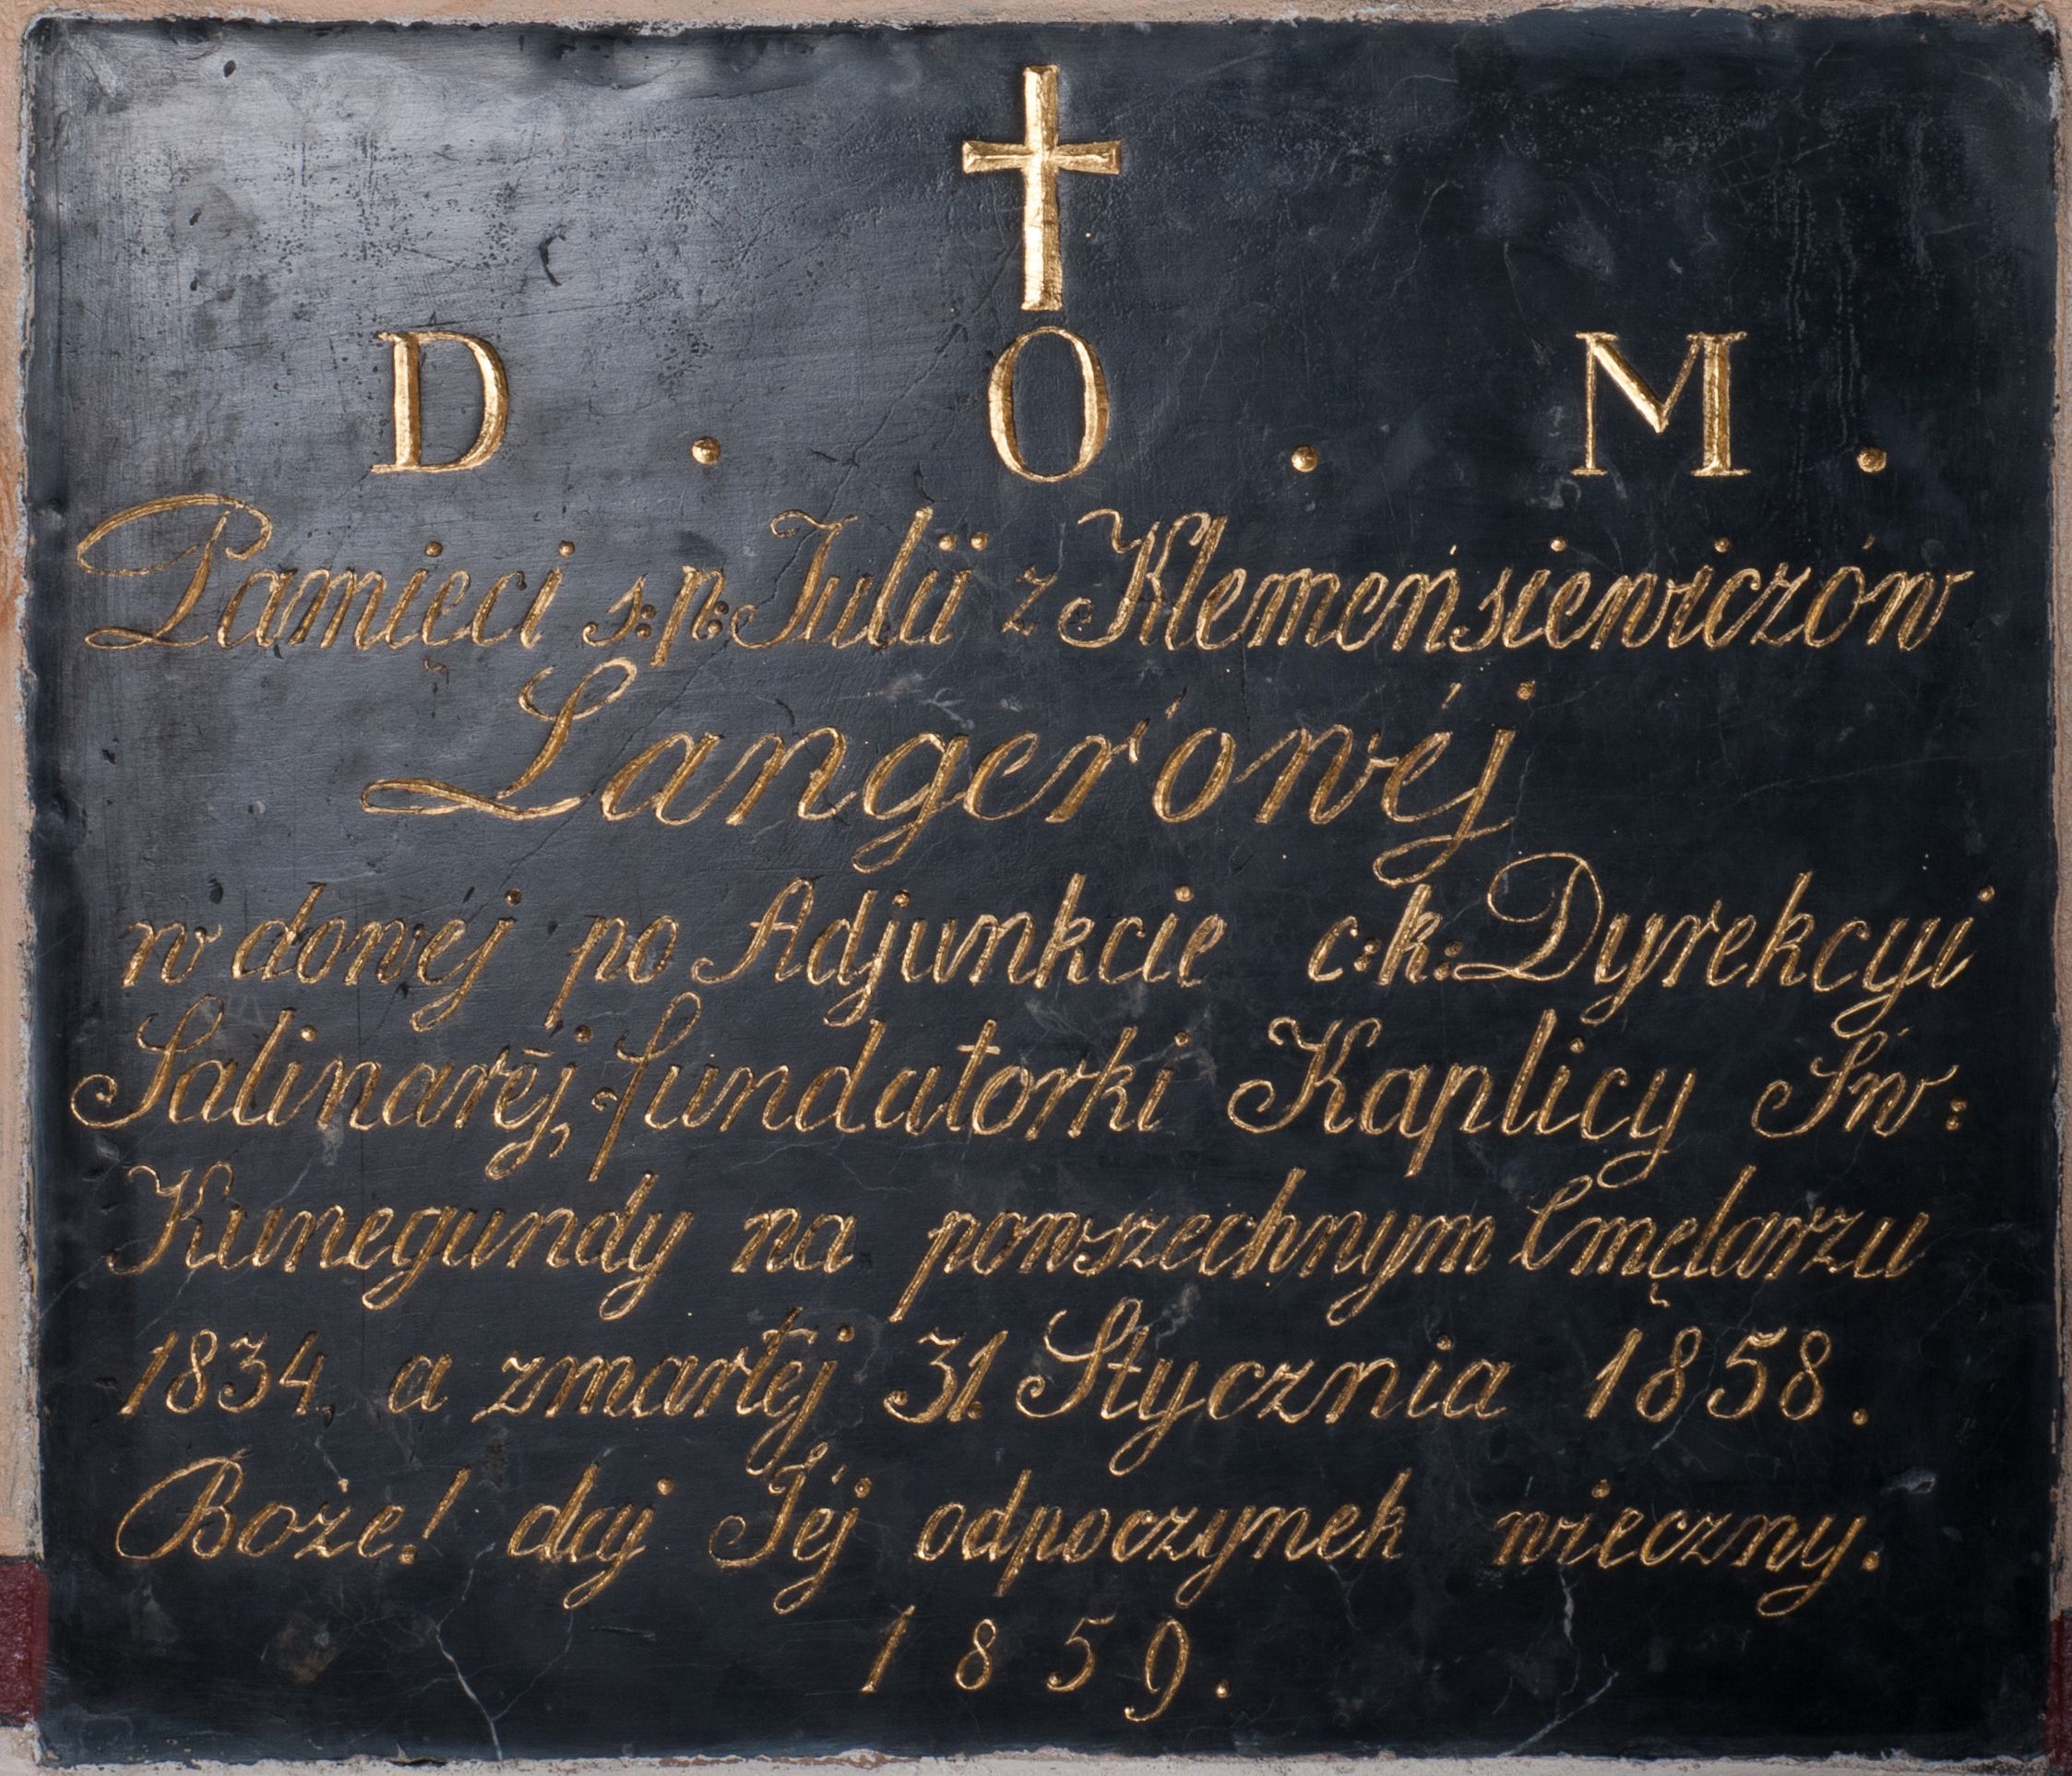 D . O . M .
Pamięci ś:p: Julii z Klemeńsiewiczów
Langerówéj
wdowej po Adjunkcie c:k: Dyrekcyi
Salinaréj, fundatorki Kaplicy Św:
Kunegundy na powszechnym Cmętarzu
1834, a zmarłéj 31. Stycznia 1858.
Boże! daj Jéj odpoczynek wieczny.
1859.